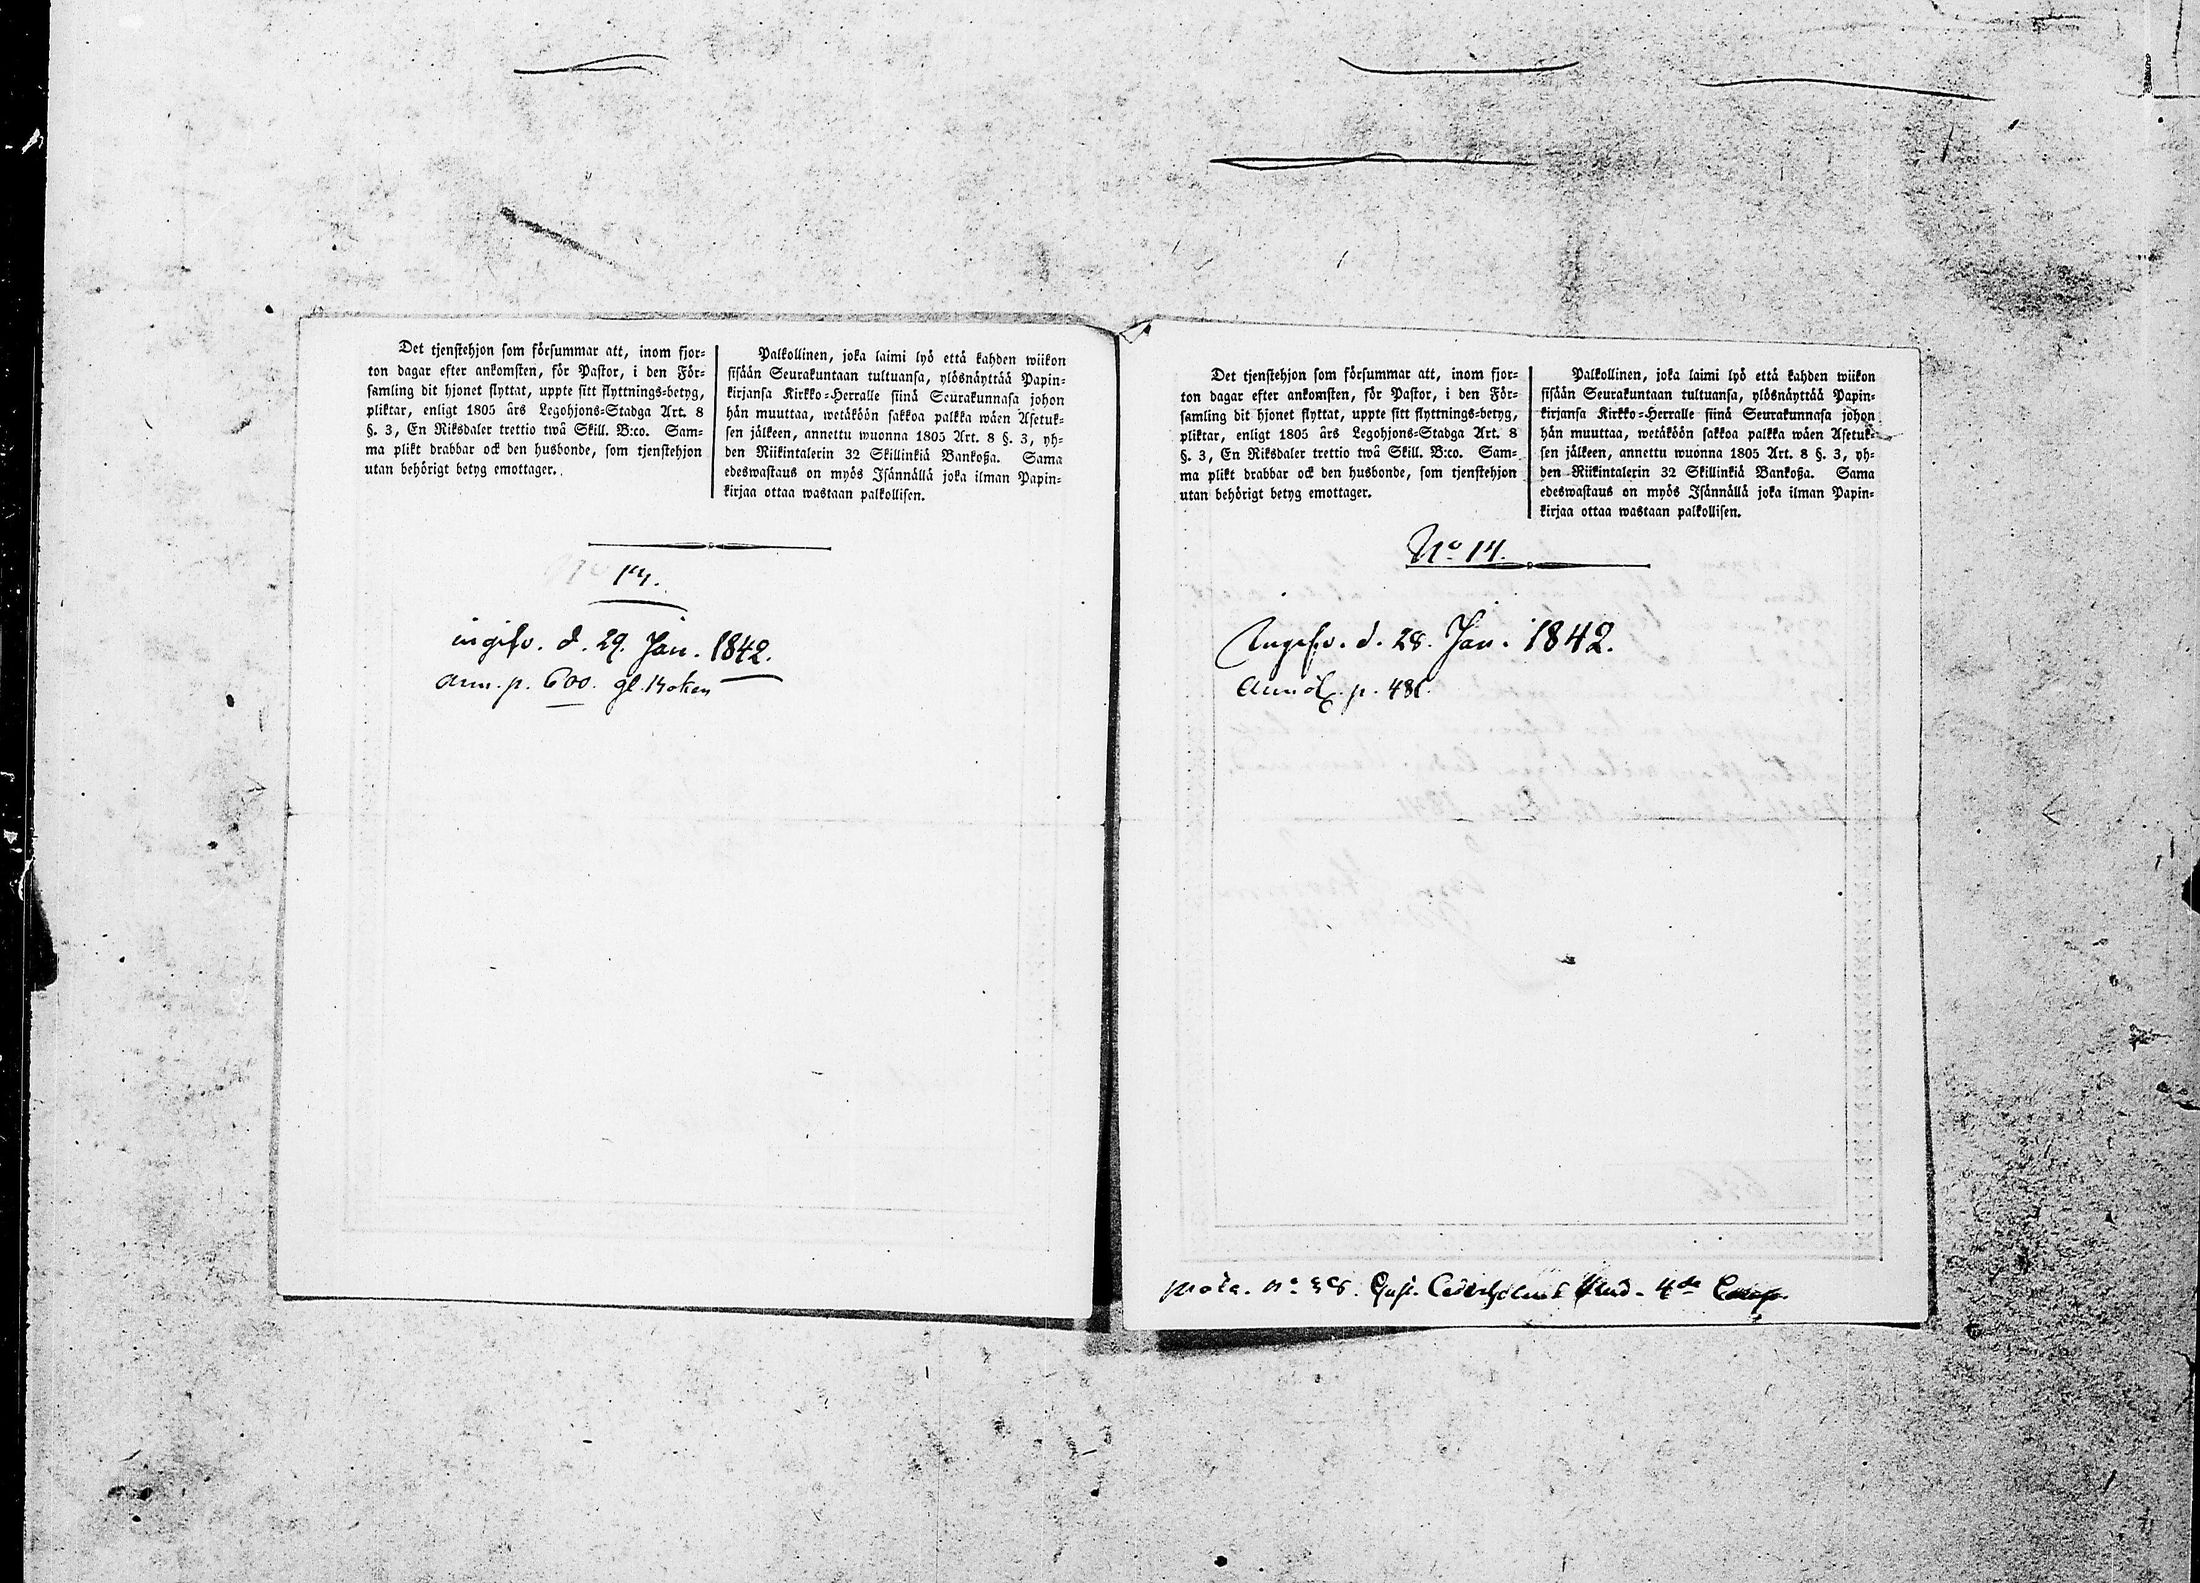 Det tjenstehjon som försummar att, inom fjor-
ton dagar efter ankomsten, för Pastor, i den För-
samling dit hjonet flyttat, uppte sitt flyttnings-betyg,
pliktar, enligt 1805 års Legohjons-Stadga Art. 8
§. 3, En Riksdaler trettio twå Skill. B:co. Sam-
ma plikt drabbar ock den husbonde, som tjenstehjon
utan behörigt betyg emottager.
Palkollinen, joka laimi lyö että kahden wiikon
sisään Seurakuntaan tultuansa, ylösnäyttää Papin-
kirjansa Kirkko-Herralle siinä Seurakunnasa johon
hän muuttaa, wetäköön sakkoa palkka wäen Asetuk-
sen jälkeen, annettu wuonna 1805 Art. 8 §. 3, yh-
den Riikintalerin 32 Skillinkiä Bankoßa. Sama
edeswastaus on myös Isännällä joka ilman Papin-
kirjaa ottaa wastaan palkollisen.
14.
ingifv. d. 29. Jan. 1842.
ann. p. 600. gl. Boken
Det tjenstehjon som försummar att, inom fjor-
ton dagar efter ankomsten, för Pastor, i den För-
samling dit hjonet flyttat, uppte sitt flyttnings-betyg,
pliktar, enligt 1805 års Legohjons-Stadga Art. 8
§. 3, En Riksdaler trettio twå Skill. B:co. Sam-
ma plikt drabbar ock den husbonde, som tjenstehjon
utan behörigt betyg emottager.
Palkollinen, joka laimi lyö että kahden wiikon
sisään Seurakuntaan tultuansa, ylösnäyttää Papin-
kirjansa Kirkko-Herralle siinä Seurakunnasa johon
hän muuttaa, wetäköön sakkoa palkka wäen Asetuk-
sen jälkeen, annettu wuonna 1805 Art. 8 §. 3, yh-
den Riikintalerin 32 Skillinkiä Bankoßa. Sama
edeswastaus on myös Isännällä joka ilman Papin-
kirjaa ottaa wastaan palkollisen.
No 14.
Ingifv. d. 28. Jan. 1842.
p. 481.
no 38. Gust. 4de Comp.